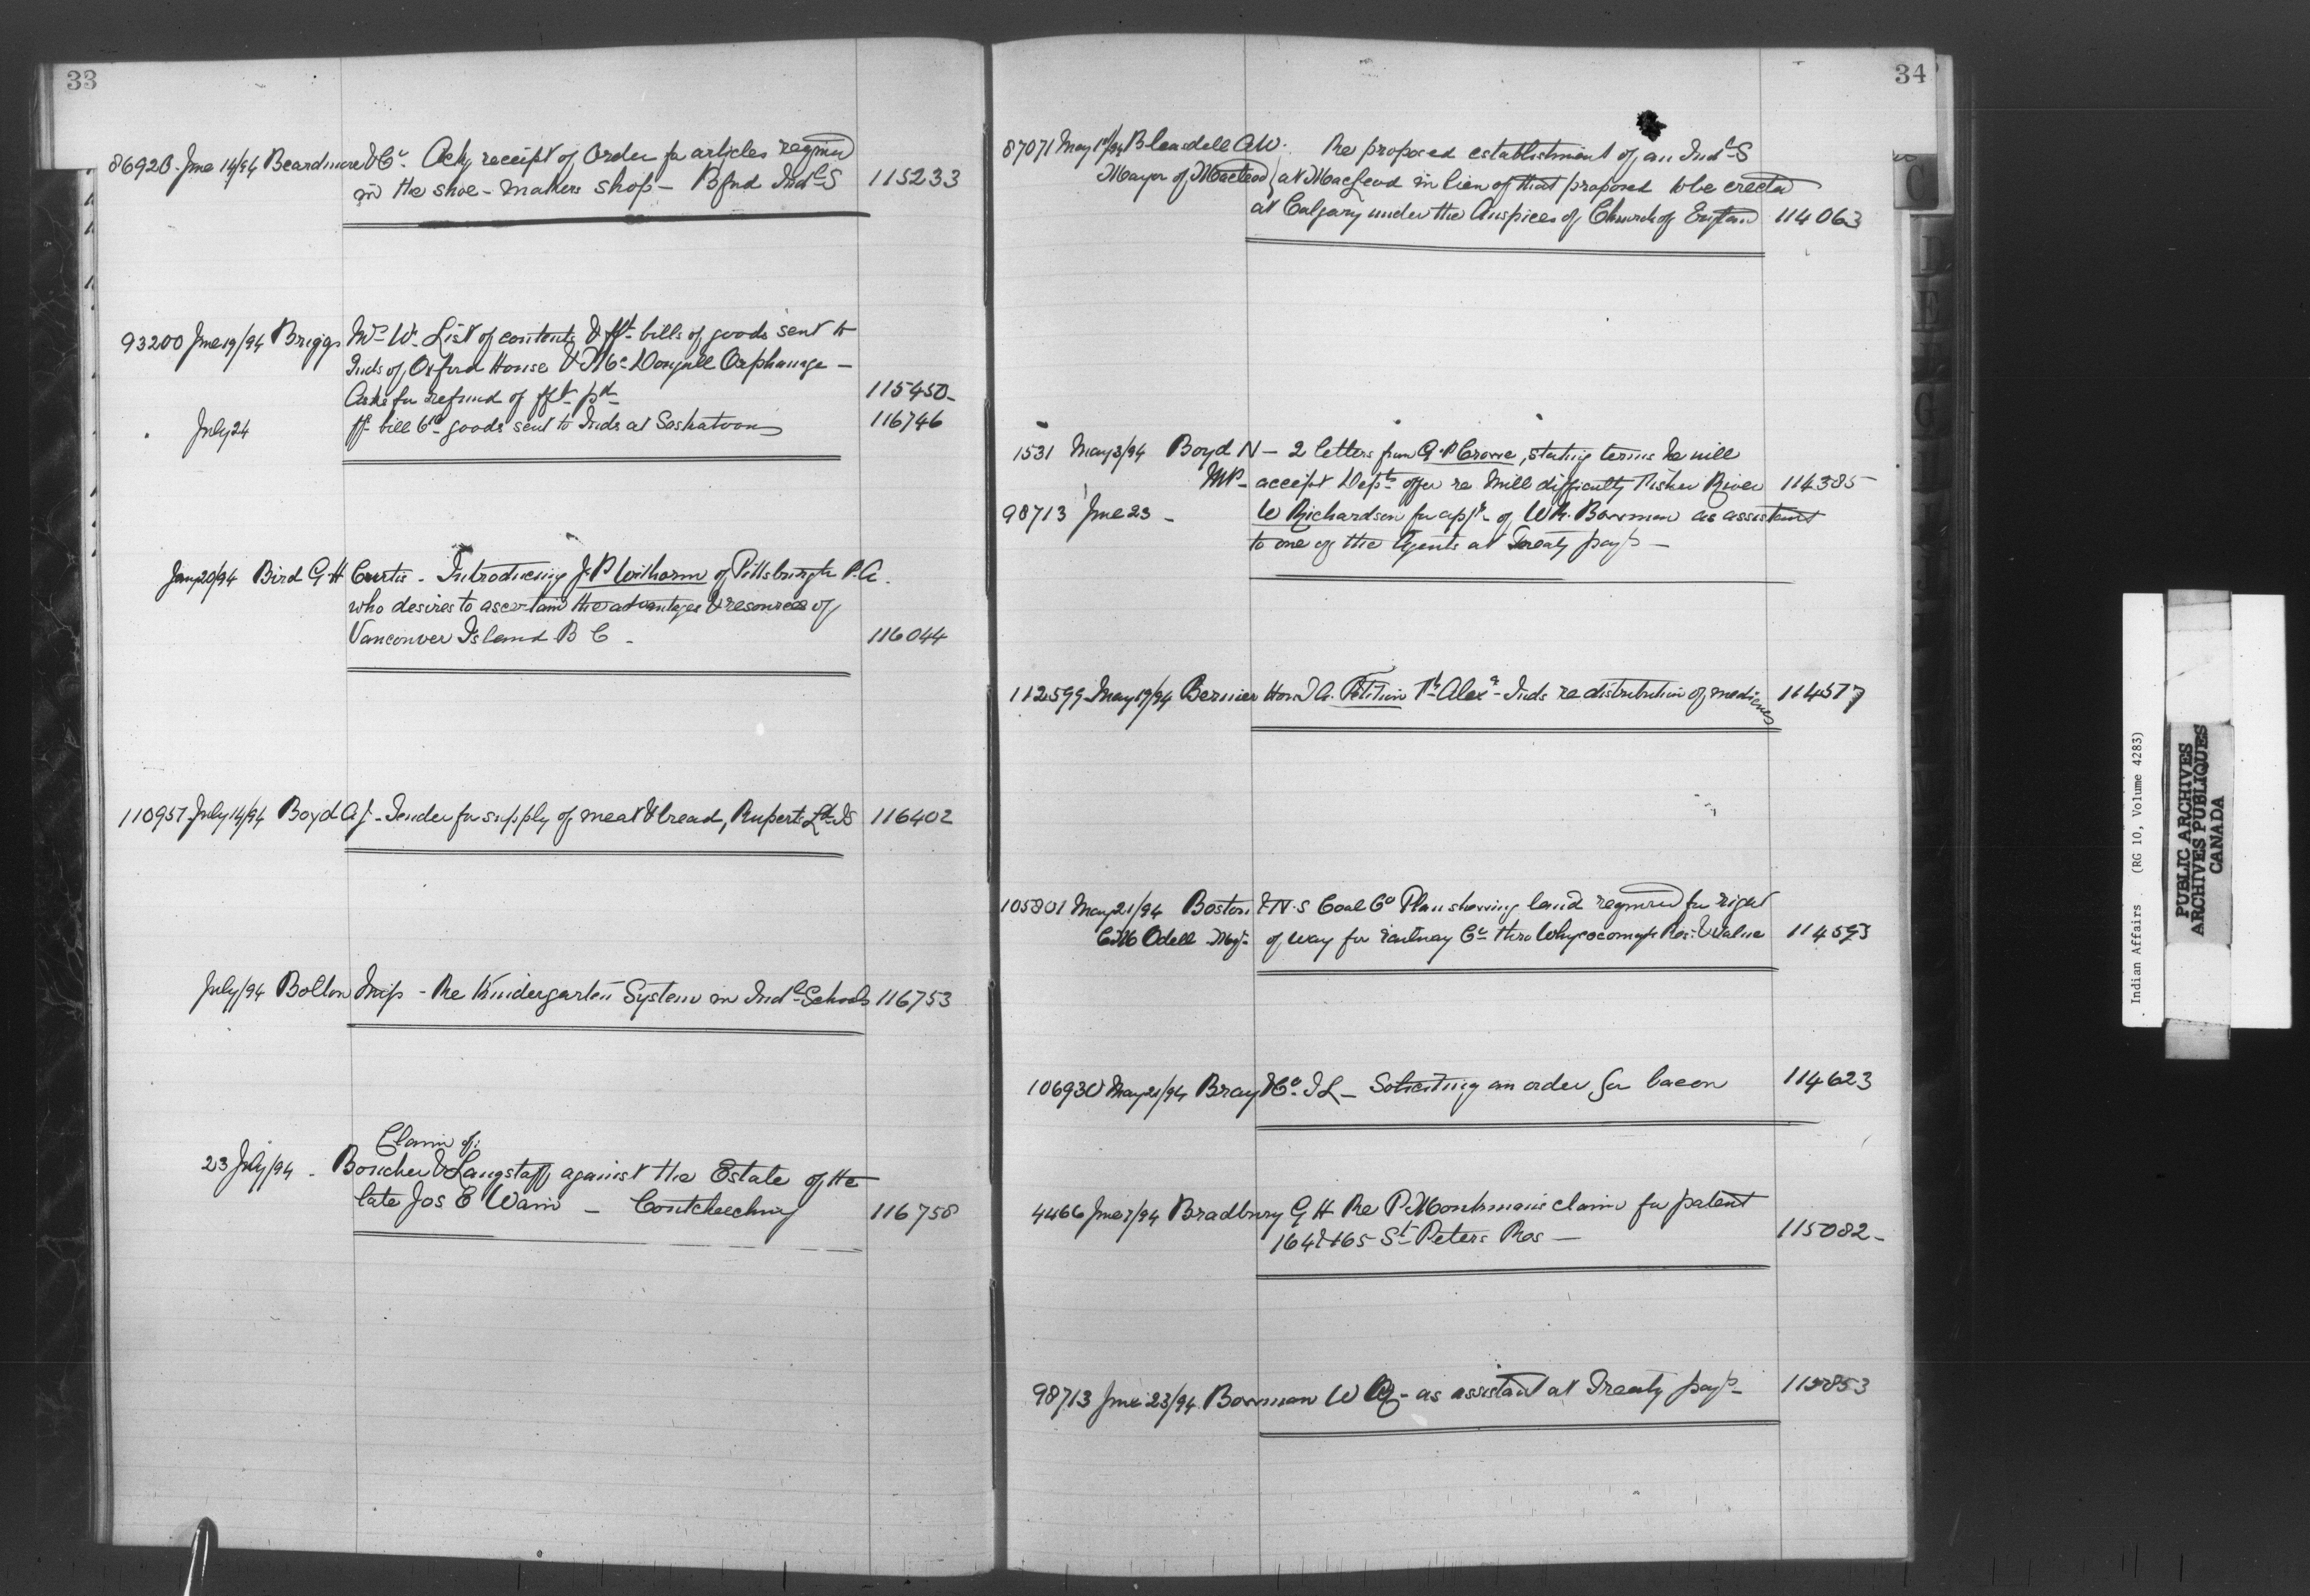 33
86920. June 14/94 Beardmore & Co. Ackg receipt of Order for articles required
in the shoe-makers shop - Bfnd Indl S 115233
93200 June 19/94 Briggs Mrs W. List of contents & fft bills of goods sent to
Inds of Oxford House & McDougall Orphanage -
Asks for refund of fft pd 115450-
July 24 fft bill Co goods sent to Inds at Saskatoon 116746
20/94 Bird G H Curtis - Introducing J. P. Witherow of Pittsburgh P.A.
who desires to ascertain the advantages & resources of
Vancouver Island B C - 116044
110957 July 14/94 Boyd A J - Tender for supply of meat & bread, Ruperts Ld IS 116402
July/94 Bolton Miss - Re Kindergarten System in Indl Schools 116753
Claim of
23 July/94 - Boucher & Langstaff, against the Estate of the
late Jos E - Coutcheeching 116758
34
87071 May 1st/94 Bleasdell A W. Re proposed establishment of an Indl S
Mayor of Macleod } at MacLeod in lieu of that proposed to be erected
at Calgary under the Auspices of Church of England 114063
1531 May 3/94 Boyd N - 2 letters from G. P. Crowe, stating terms he will
MP - accept Depts offer re Mill difficulty Fisher River 114385
98713 June 23 - W Richardson for appt of W R. Bowman as assistant
to one of the Agents at Treaty payts -
112599 May 19/94 Bernier Hon T A. Petition Pt Alexr Inds re distribution of medicines 114577
105801 May 21/94 Boston & N. S Coal Co Plan showing land required for right
C M Odell Mgr of way for railway Co thro Whycocomagh Res: & Value 114593
106930 May 21/94 Bray & Co. J L - Soliciting an order for bacon 114623
4466 June 7/94 Bradbury G H Re P. claim for patent
164 & 165 St Peters Res - 115082-
98713 June 23/94 Bowman W R - as assistant at Treaty payts 115853
C
D
E
F
G
Indian Affairs (RG 10, Volume 4283)
PUBLIC ARCHIVES
ARCHIVES PUBLIQUES
CANADA